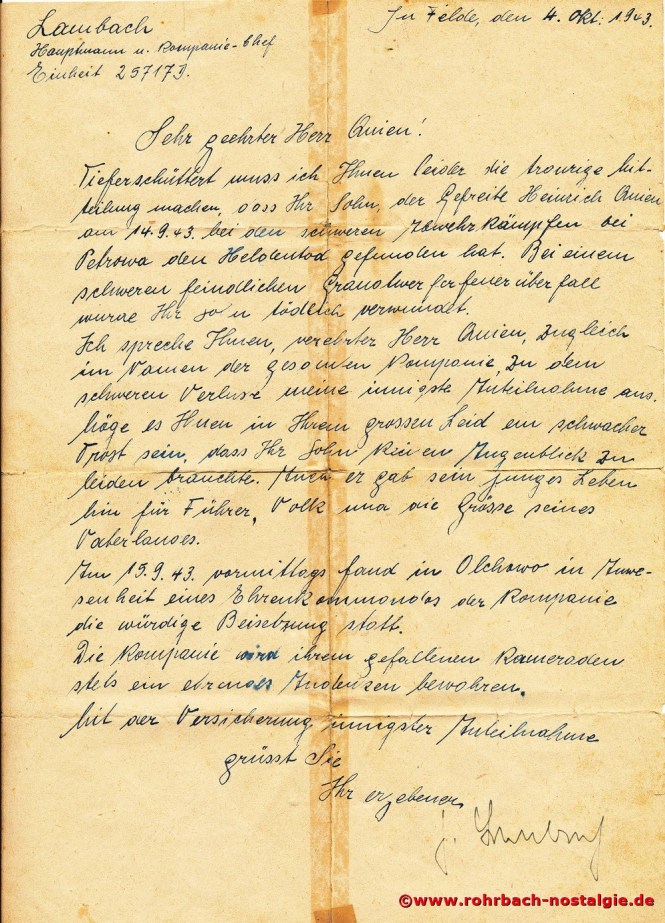 Lambach
Hauptmann u. Kompanie-Chef
Einheit 25717D.
Im Felde, den 4. Okt. 1943.
Sehr geehrter Herr Anien!
Tieferschüttert muss ich Ihnen leider die traurige Mit-
teilung machen, dass Ihr Sohn, der Gefreite Heinrich Anien
am 14.9.43. bei den schweren Abwehrkämpfen bei
Petrowa den Heldentod gefunden hat. Bei einem
schweren feindlichen Granatwerferfeuerüberfall
wurde Ihr Sohn tödlich verwundet.
Ich spreche Ihnen, verehrter Herr Anien, zugleich
im Namen der gesamten Kompanie, zu dem
schweren Verluste meine innigste Anteilnahme aus.
Möge es Ihnen in Ihrem grossen Leid ein schwacher
Trost sein, dass Ihr Sohn keinen Augenblick zu
leiden brauchte. Auch er gab sein junges Leben
hin für Führer, Volk und die Grösse seines
Vaterlandes.
Am 15.9.43. vormittags fand in Olchowo in Anwe-
senheit eines Ehrenkommandos der Kompanie
die würdige Beisetzung statt.
Die Kompanie wird ihrem gefallenen Kameraden
stets ein ehrendes Andenken bewahren.
Mit der Versicherung innigster Anteilnahme
grüsst Sie
Ihr ergebener
©www.rohrbach-nostalgie.de